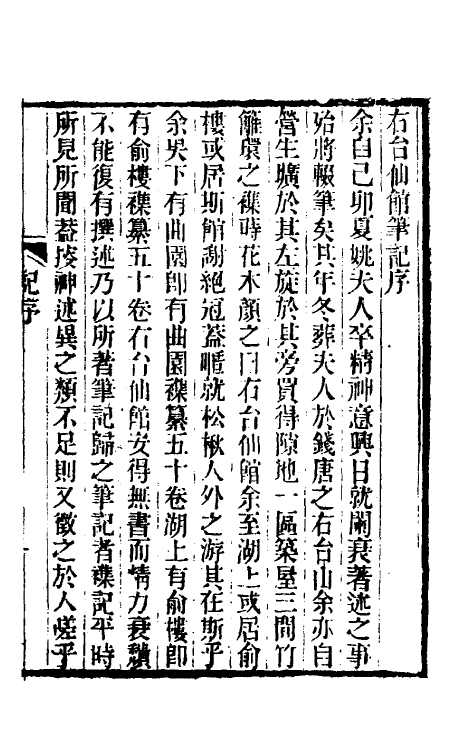 右台仙館筆記序
余自己卯夏姚夫人卒精神意興日就闌衰著述之事
殆將輟筆矣其年冬葬夫人於錢唐之右台山余亦自
營生壙於其左旋於其旁買得隙地一區築屋三間竹
籬環之襍時花木顏之曰右台仙館余至湖上或居俞
樓或居斯館謝絕冠蓋暱就松楸人外之游其在斯乎
余吳下有曲園卽有曲園襍纂五十卷湖上有俞樓卽
有俞樓襍纂五十卷右台仙館安得無書而精力衰頹
不能復有撰述乃以所著筆記歸之筆記者襍記平時
所見所聞蓋搜神述異之類不足則又徵之於人嗟乎
記序